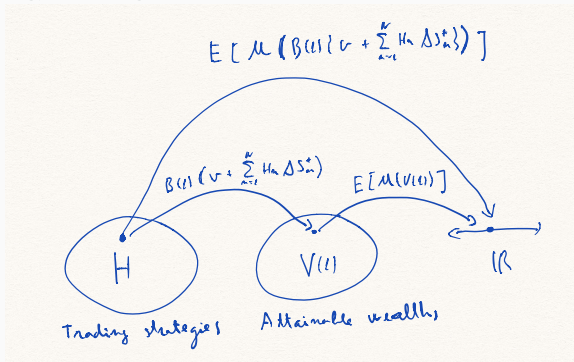 E [ u ( B(1) { v + ∑_{n=1}^{N} H_n ΔS_n^* } ) ]
B(1) ( v + ∑_{n=1}^{N} H_n ΔS_n^* )
E [ u(V(1)) ]
H
V(1)
ℝ
Trading strategies
Attainable wealths